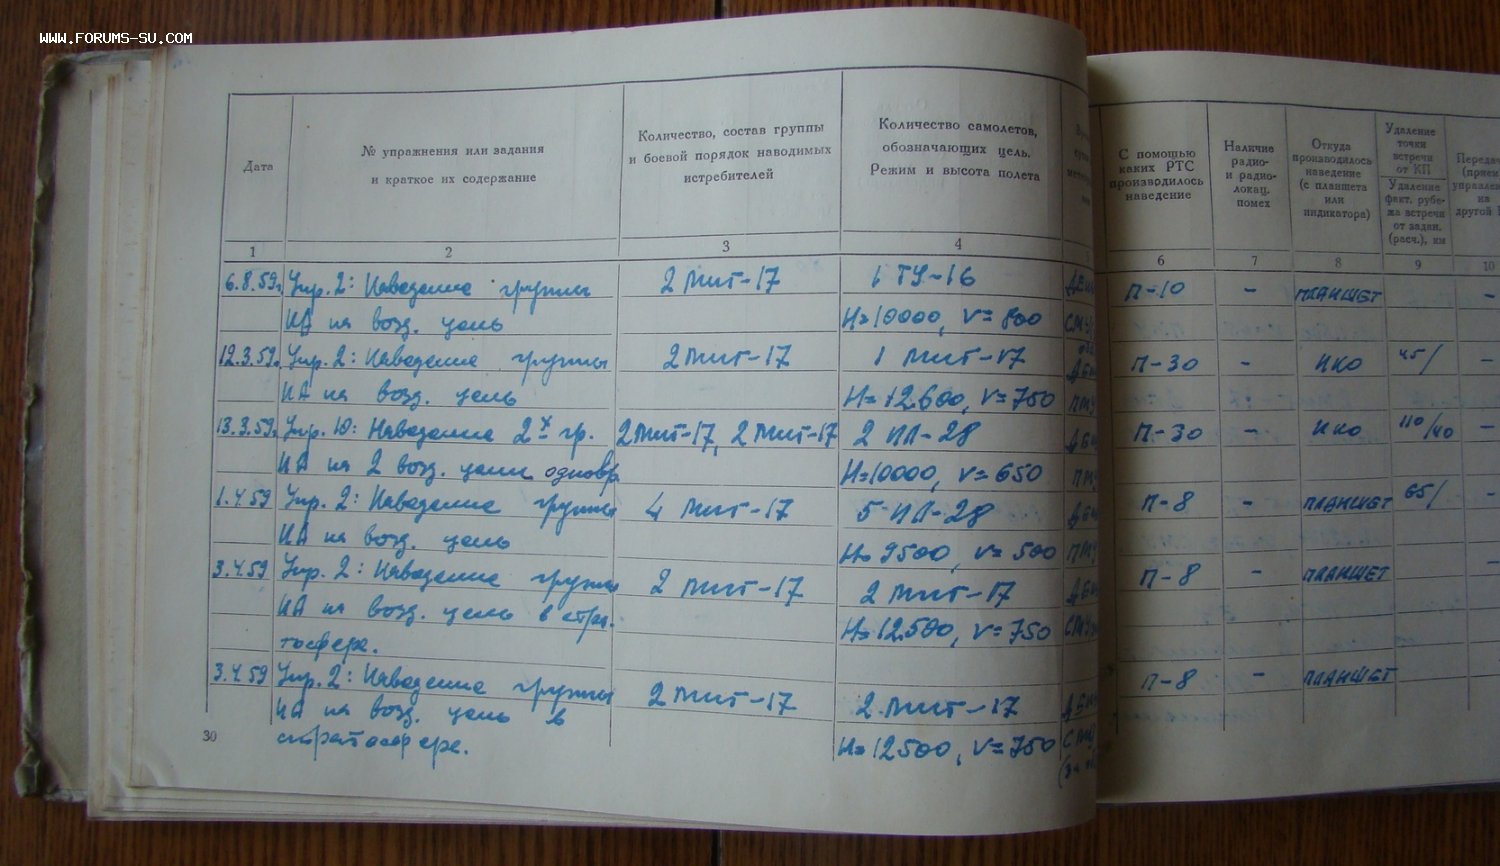 WWW.FORUMS-SU.COM
Дата
№ упражнения или задания
и краткое их содержание
Количество, состав группы
и боевой порядок наводимых
истребителей
Количество самолетов,
обозначающих цель.
Режим и высота полета
С помощью
каких РТС
производилось
наведение
Наличие
радио-
и радио-
локац.
помех
Откуда
производилось
наведение
(с планшета
или
индикатора)
Удаление
точки
встречи
от КП
Удаление
факт. рубе-
жа встречи
от задан.
(расч.), км
на
1 2 3 4 5 6 7 8 9 10
6.8.59г. Упр. 2: Наведение группы 2 Миг-17 1 ТУ-16 П-10 - планшет -
ИА на возд. цель Н=10000, V=800
12.3.59г. Упр. 2: Наведение группы 2 Миг-17 1 Миг-17 П-30 - ИКО 45/ -
ИА на возд. цель Н=12600, V=750
13.3.59г. Упр. 10: Наведение 2х гр. 2 Миг-17, 2 Миг-17 2 ИЛ-28 П-30 - ИКО 110/40 -
ИА на 2 возд. цели одновр. Н=10000, V=650
1.4.59 Упр. 2: Наведение группы 4 Миг-17 5 ИЛ-28 П-8 - планшет 65/ -
ИА на возд. цель Н=9500, V=500
3.4.59 Упр. 2: Наведение группы 2 Миг-17 2 Миг-17 П-8 - планшет -
ИА на возд. цель в стра- Н=12500, V=750
тосфере.
3.4.59 Упр. 2: Наведение группы 2 Миг-17 2 Миг-17 П-8 - планшет
ИА на возд. цель в
стратосфере. Н=12500, V=750
30